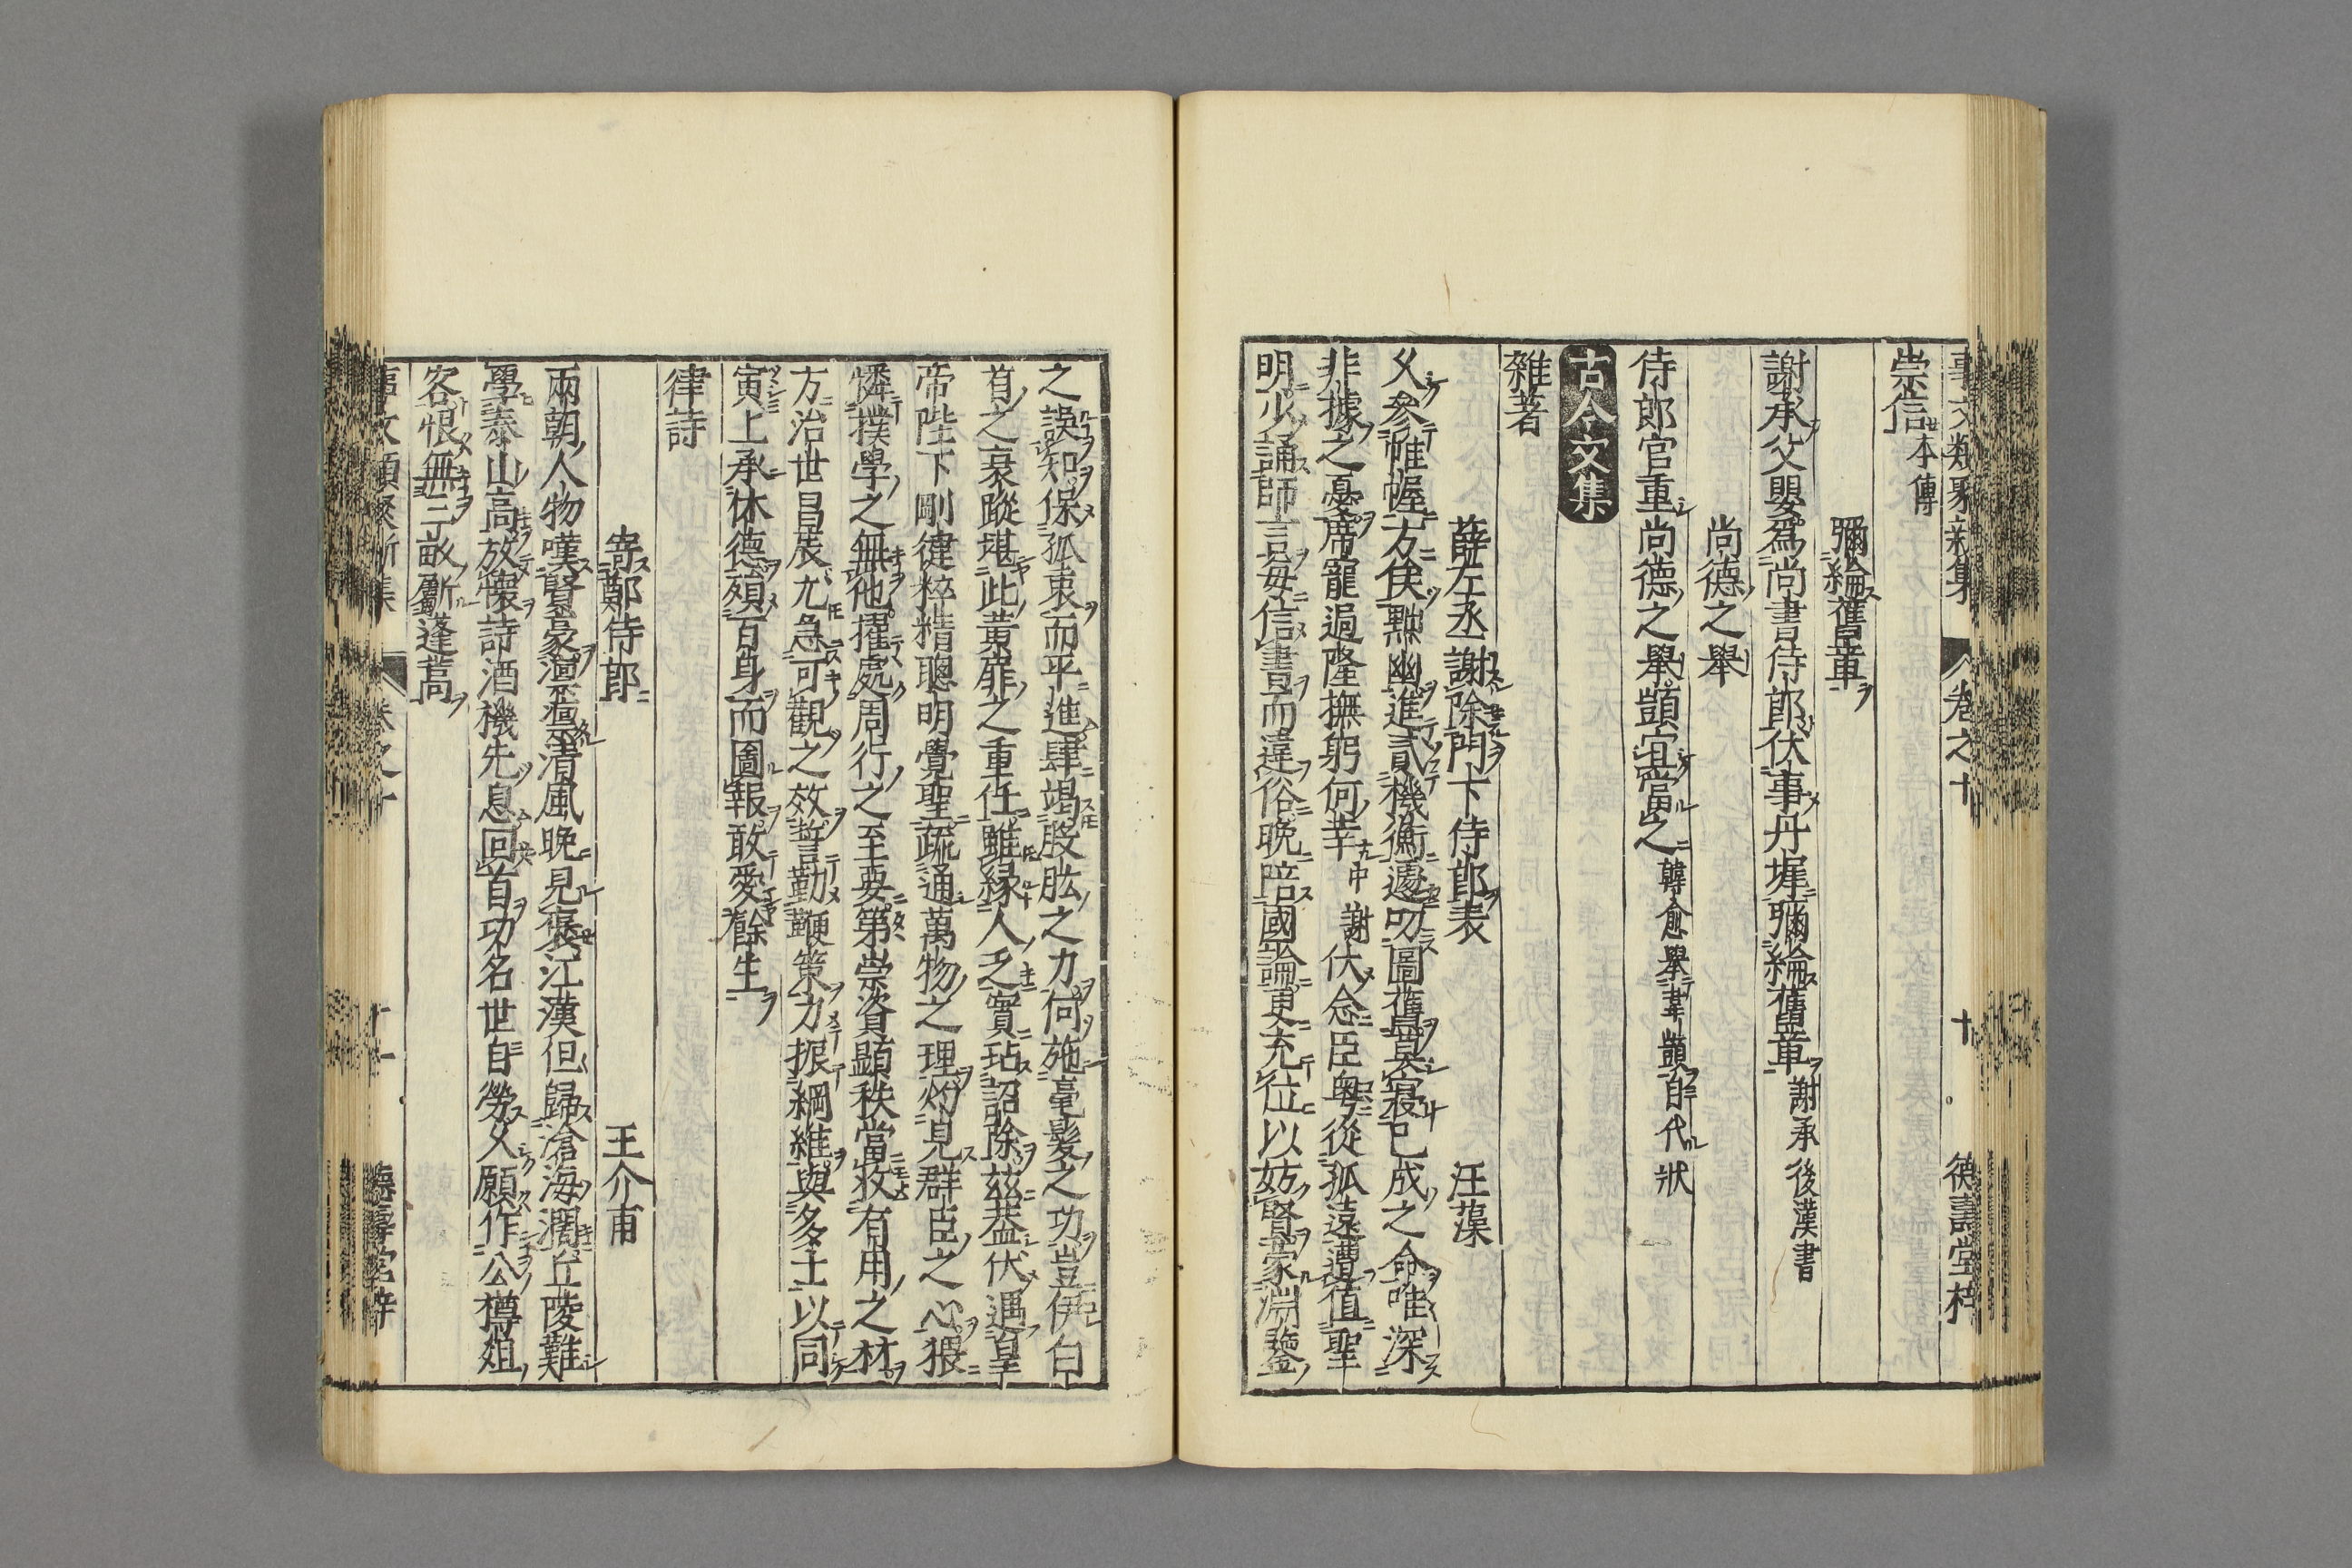 事文類聚新集 卷之十 十 德壽堂梓
崇信本傳
彌綸舊章
謝承父嬰爲尚書侍郎伏事丹墀彌綸舊章謝承後漢書
尚德之舉
侍郎官重尚德之舉顗宜當之韓愈舉韋顗自代狀
古今文集
雜著
薛左丞謝除門下侍郎表 汪藻
乆參帷幄方俟黜幽進貳機衡遽叨圖舊莫寢已成之命唯深
非據之憂席寵過隆撫躬何幸中謝伏念臣粤從孤遠遭值聖
明少誦師言毋信書而違俗晚陪國論更充位以妨賢蒙淵鑒
之誤知保孤衷而平進肆竭股肱之力何施毫髮之功豈伊白
首之衰蹤堪此黃扉之重任雖緣人乏實玷詔除兹葢伏遇皇
帝陛下剛健粹精聰明覺聖疏通萬物之理灼見群臣之心猥
憐撲學之無他擢處周行之至要第崇資顯秩當收有用之材
方治世昌辰尤急可觀之效誓勤鞭策力振綱維與多士以同
寅上承休德殞百身而圖報敢愛餘生
律詩
寄鄭侍郎 王介甫
兩朝人物嘆賢豪凛凛清風晚見褒江漢但歸滄海濶丘陵難
學泰山高放懷詩酒機先息回首功名世自勞乆願作公樽俎
客恨無三畝斸蓬蒿
事文類聚新集 卷之十 十一 德壽堂梓